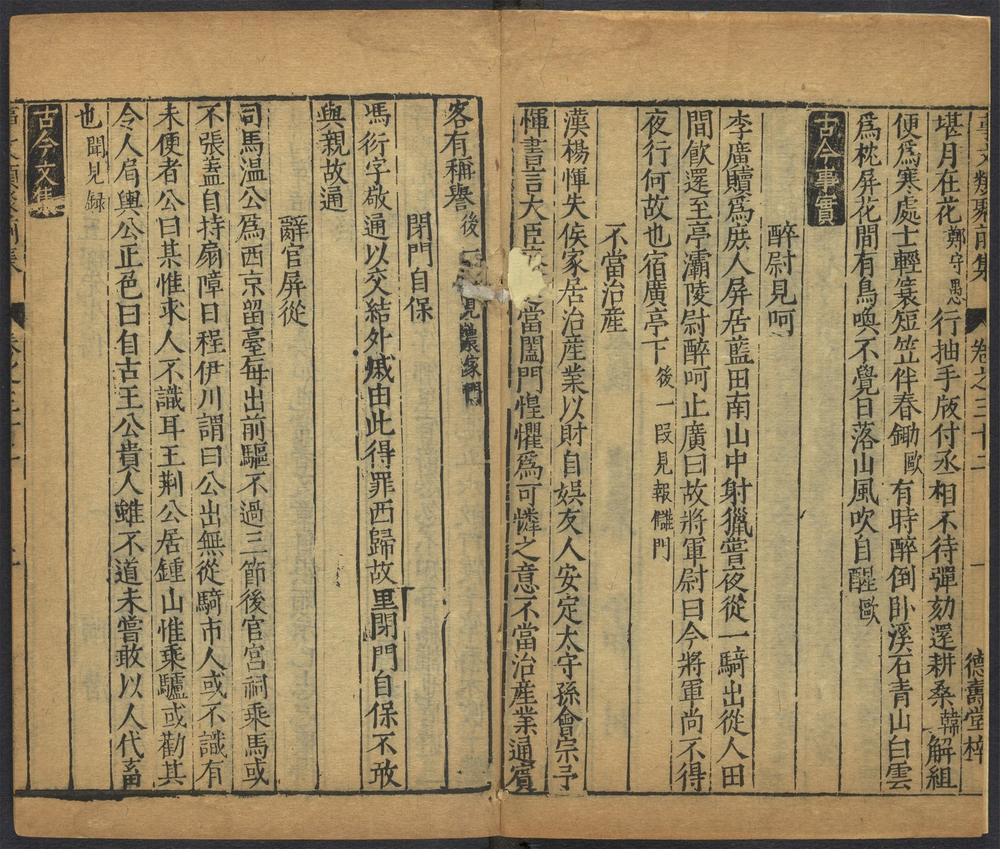 事文類聚前集 卷之三十二 一 德壽堂梓
堪月在花鄭守愚行抽手版付丞相不待彈劾還耕桑韓解組
便爲寒處士輕簑短笠伴春鋤歐有時醉倒臥溪石青山白雲
爲枕屏花間有鳥喚不覺日落山風吹自醒歐
古今事實
醉尉見呵
李廣贖爲庶人屏居藍田南山中射獵嘗夜從一騎出從人田
間飲還至亭灞陵尉醉呵止廣曰故將軍尉曰今將軍尚不得
夜行何故也宿廣亭下後一段見報讎門
不當治産
漢楊惲失侯家居治産業以財自娯友人安定太守孫會宗予
惲書言大臣當闔門惶懼爲可憐之意不當治産業通賓
客有稱譽後見農家門
閉門自保
馮衍字敬通以交結外戚由此得罪西歸故里閉門自保不敢
與親故通
辭官屏從
司馬温公爲西京留臺每出前驅不過三節後官宮祠乘馬或
不張蓋自持扇障日程伊川謂曰公出無從騎市人或不識有
未便者公曰某惟求人不識耳王荆公居鍾山惟乘驢或勸其
令人肩輿公正色曰自古王公貴人雖不道未嘗敢以人代畜
也聞見録
古今文集